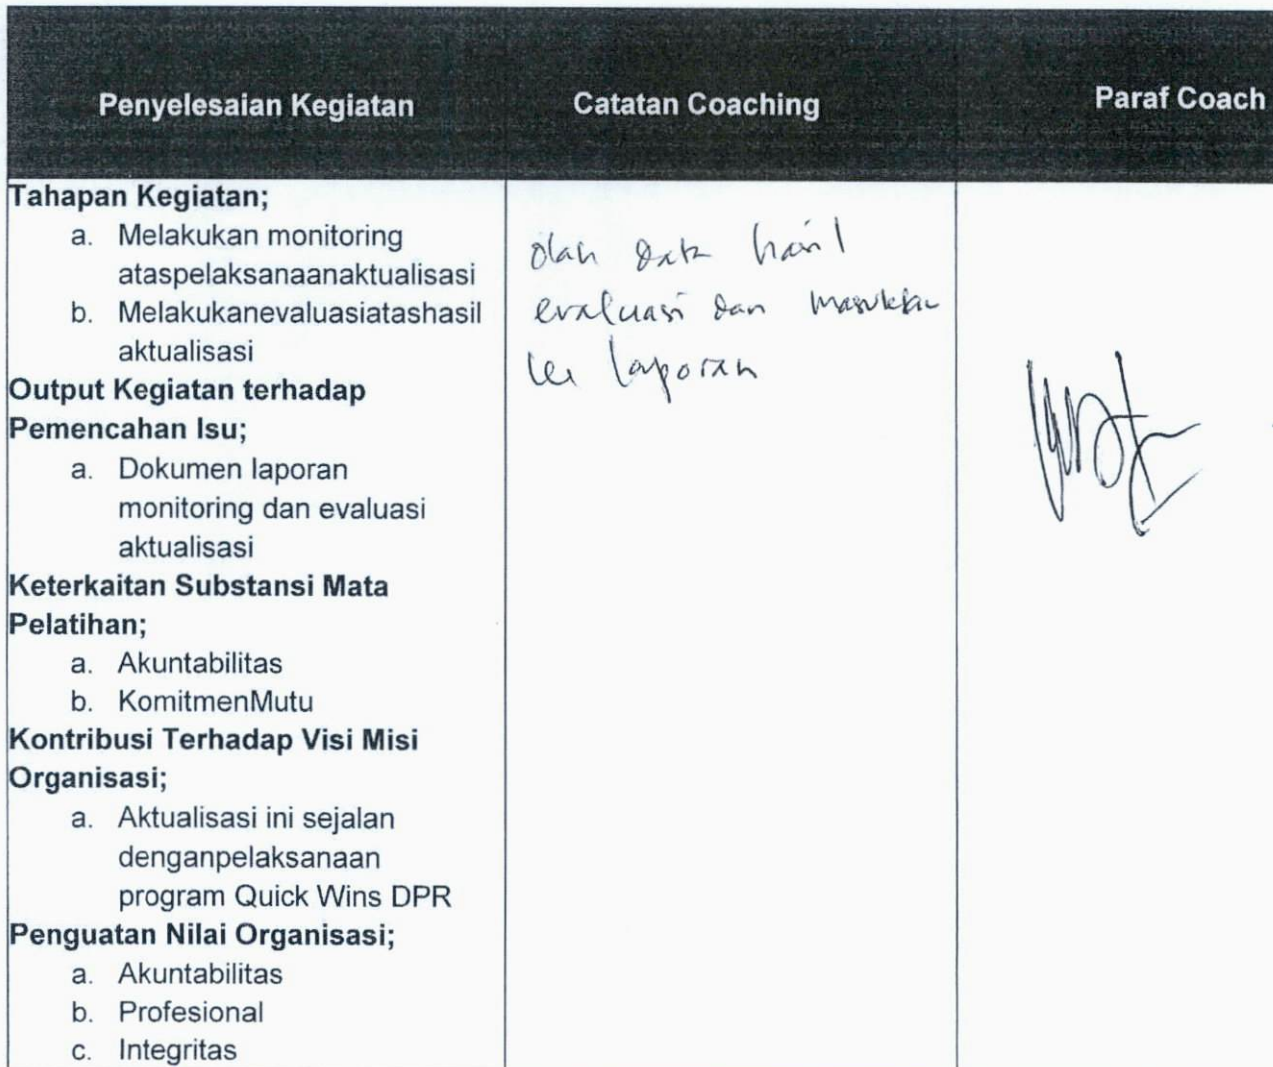 Penyelesaian Kegiatan
Catatan Coaching
Paraf Coach
Tahapan Kegiatan;
a. Melakukan monitoring
ataspelaksanaanaktualisasi
b. Melakukanevaluasiatashasil
aktualisasi
Output Kegiatan terhadap
Pemencahan Isu;
a. Dokumen laporan
monitoring dan evaluasi
aktualisasi
Keterkaitan Substansi Mata
Pelatihan;
a. Akuntabilitas
b. KomitmenMutu
Kontribusi Terhadap Visi Misi
Organisasi;
a. Aktualisasi ini sejalan
denganpelaksanaan
program Quick Wins DPR
Penguatan Nilai Organisasi;
a. Akuntabilitas
b. Profesional
c. Integritas
olah data hasil
evaluasi dan masukkan
ke laporan